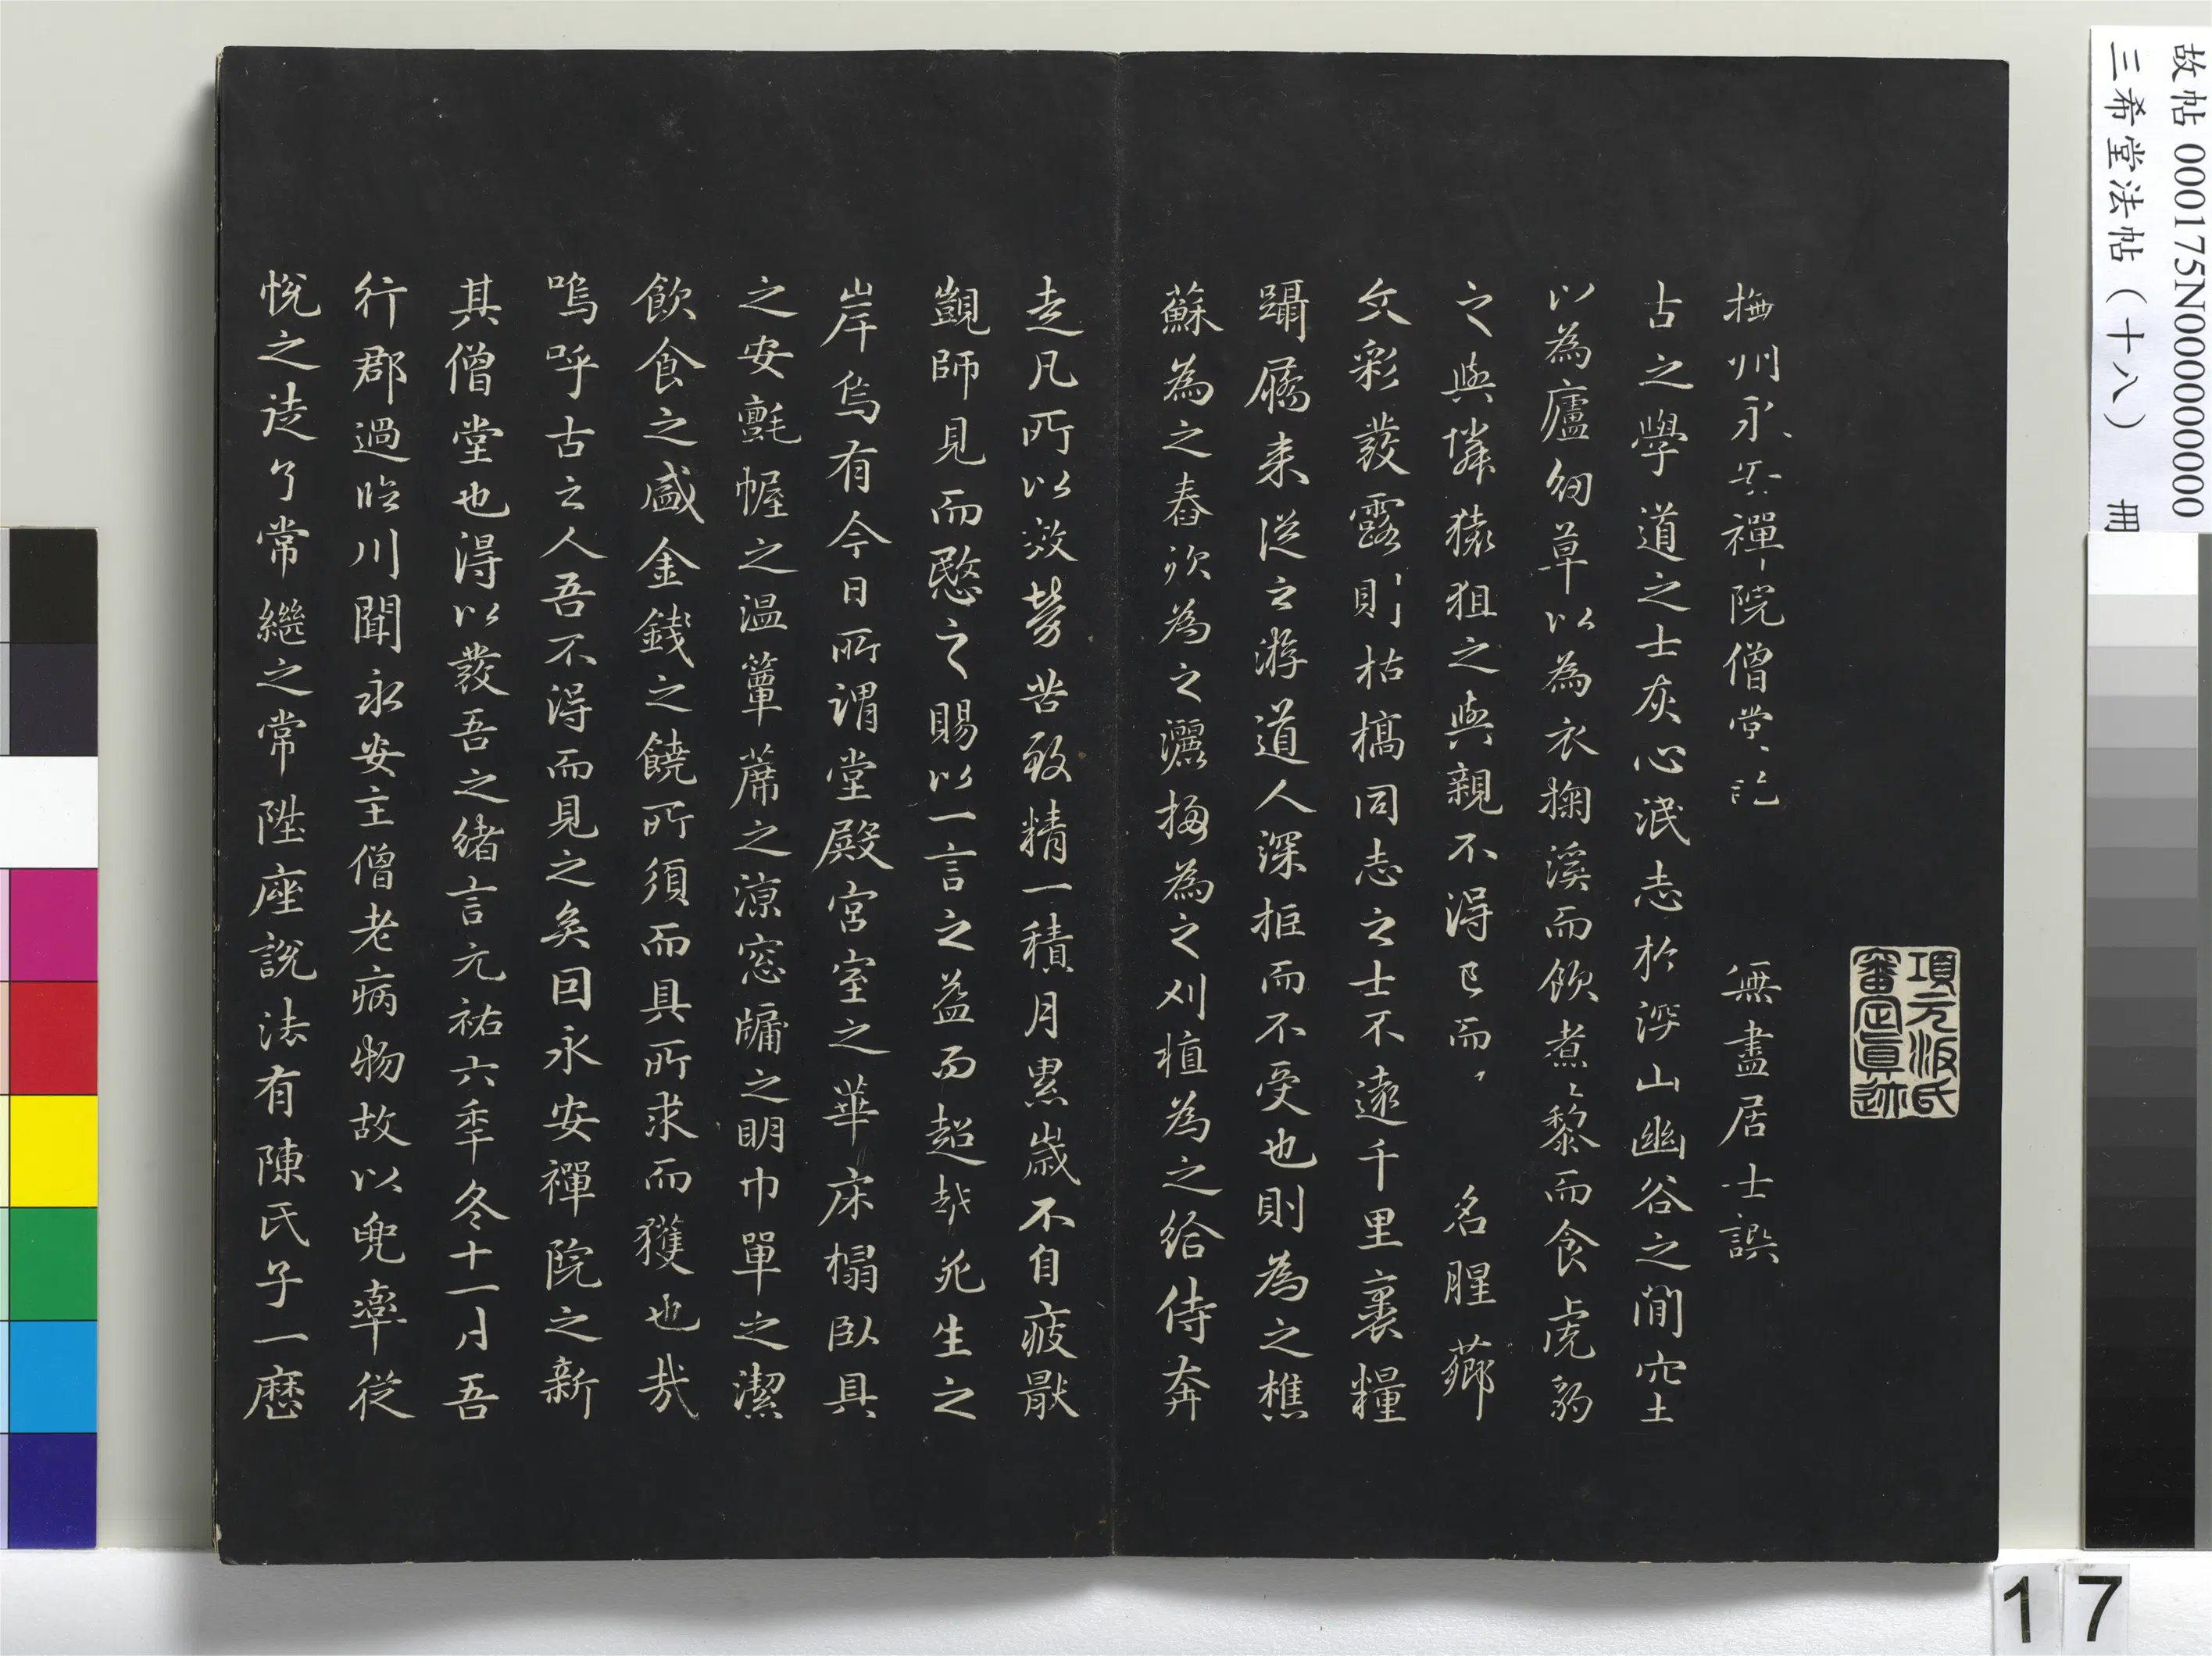 故帖 000175N000000000
三希堂法帖（十八） 冊
項元汴氏
審定真跡
撫州永安禪院僧堂記 無盡居士譔
古之學道之士灰心泯志於深山幽谷之間穴土
以為廬紉草以為衣掬溪而飲煮黎而食虎豹
之與隣猿狙之與親不得已而名腥薌
文彩發露則枯槁同志之士不遠千里裹糧
躡屩来從之游道人深拒而不受也則為之樵
蘇為之舂炊為之灑掃為之刈植為之給侍奔
走凡所以效勞苦致精一積月累歲不自疲厭
覬師見而愍之賜以一言之益而超越死生之
岸烏有今日所謂堂殿宮室之華床榻臥具
之安氈幄之温簟蓆之涼窓牗之明巾單之潔
飲食之盛金錢之饒所須而具所求而獲也哉
嗚呼古之人吾不得而見之矣因永安禪院之新
其僧堂也得以發吾之緒言元祐六秊冬十一月吾
行郡過臨川聞永安主僧老病物故以兜率從
悅之徒了常繼之常陞座說法有陳氏子一歷
17